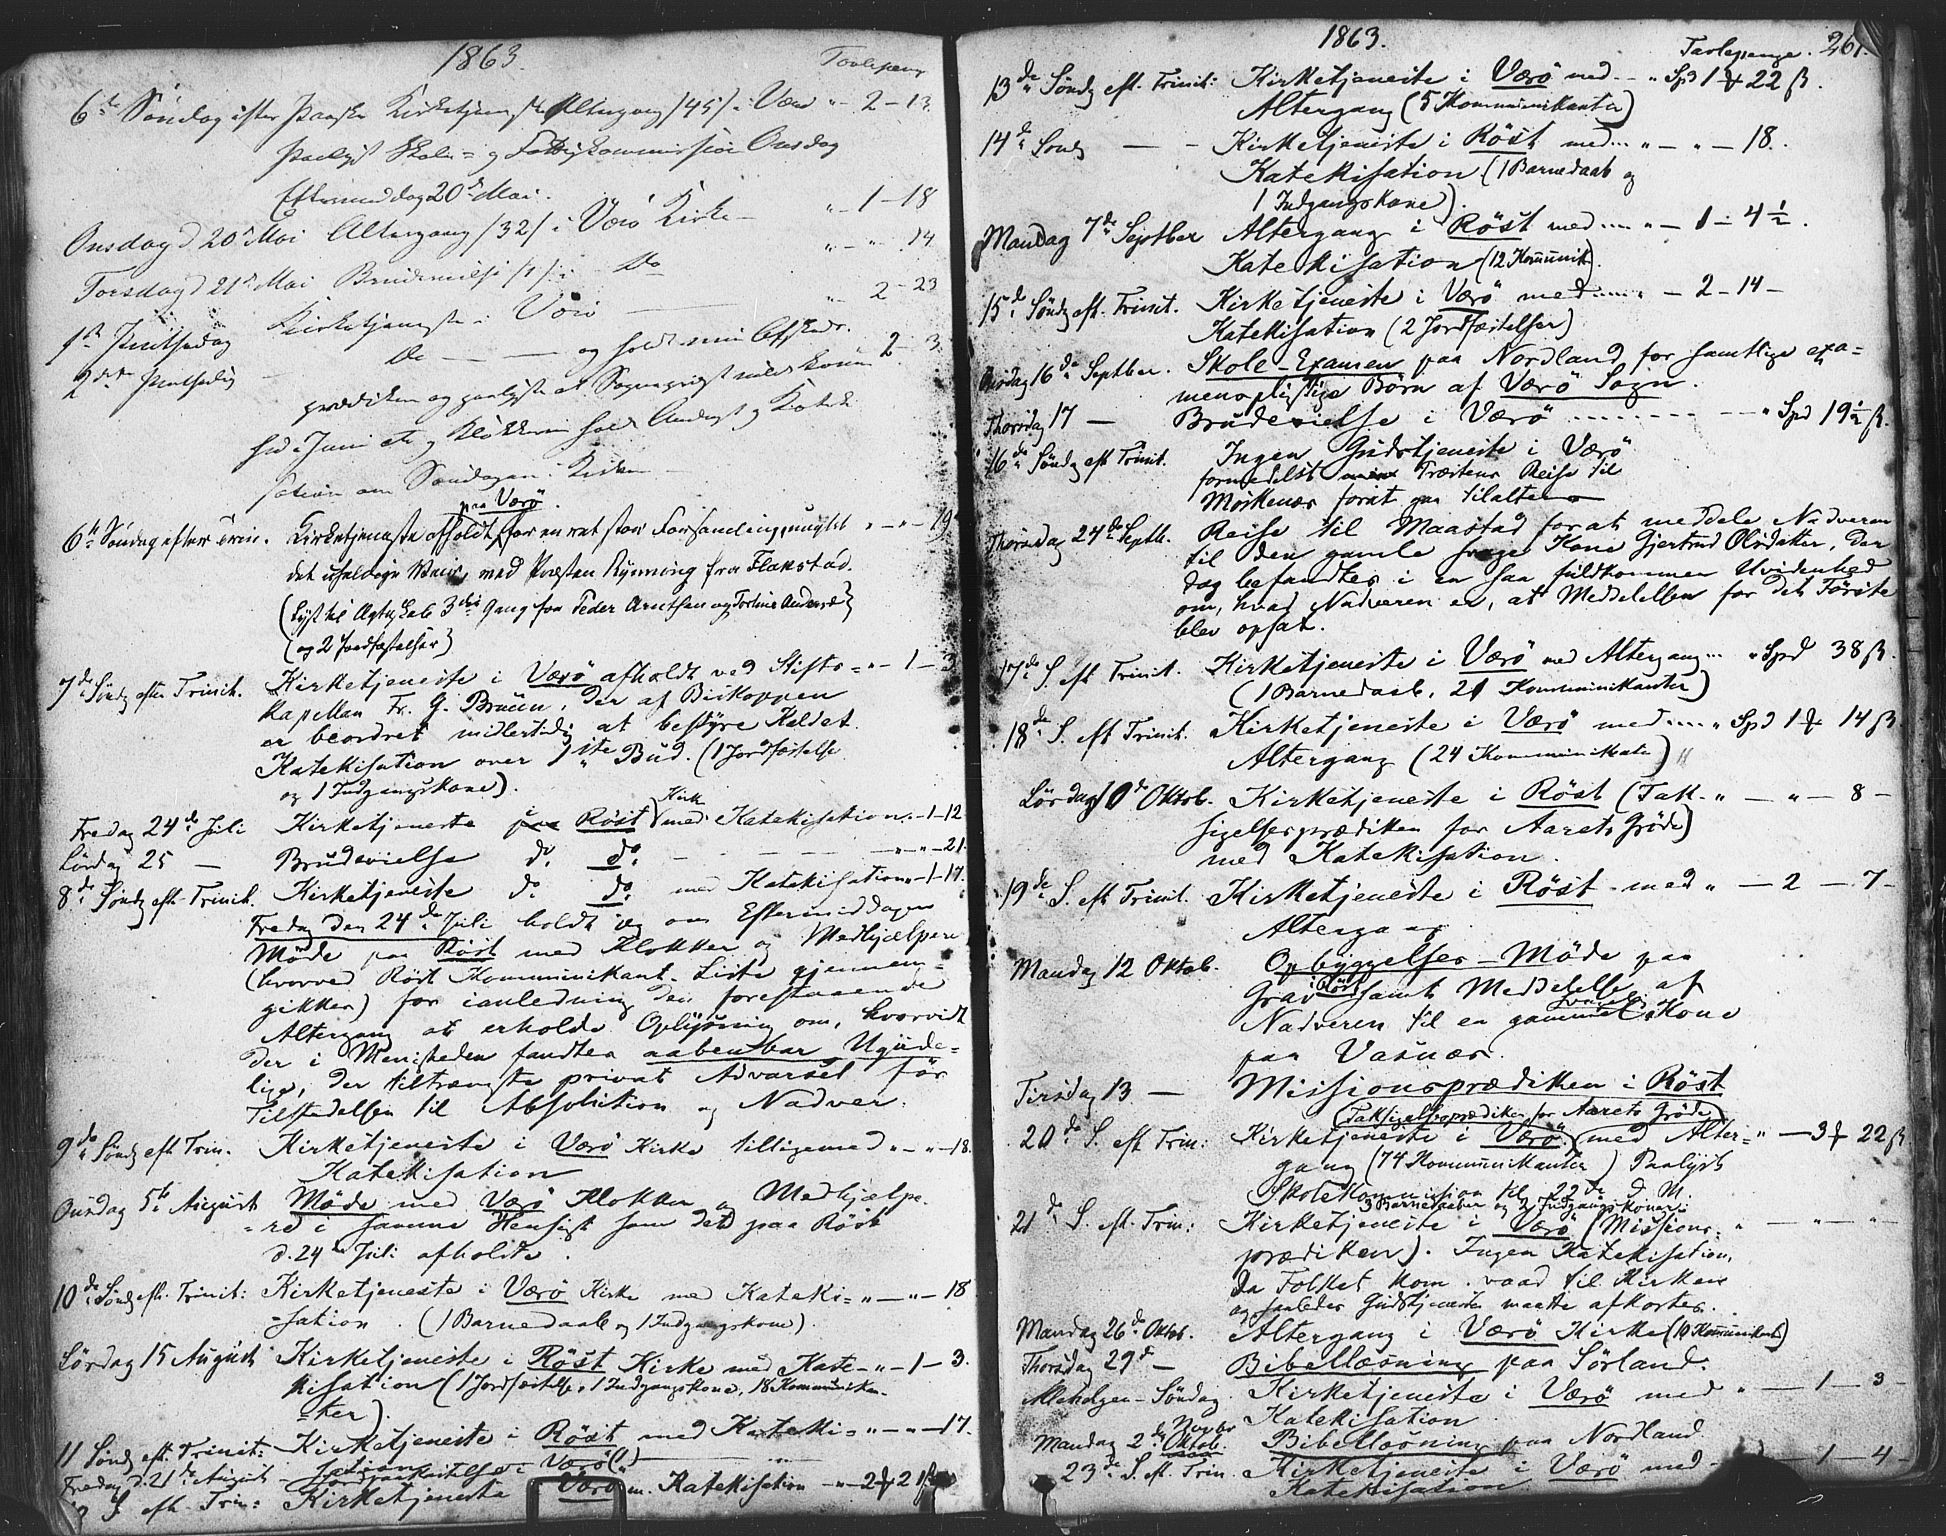 1863.
Tavlepeng
6te Söndag efter Paaske Kirketjeneste Altergang /45/ i Værö " - 2 - 13.
Paalyst Skole- og Fattigkommission Onsdag
Eftermiddag 20de Mai.
Onsdag d 20de Mai Altergang /32/ i Værö Kirke - " - 1 - 18
Torsdag d 21de Mai Brudevielse /1/ i Do " - " - 14
1ste Pintsedag Kirketjeneste i Værö " - 2 - 23
2den Pintsedag Do og holdt min Afskeds- 2 - 3
prædiken og paalyste at Sogneprest vilde komme
hid i Juni og Klokkeren holde Andagt og Katek
sation om Söndagen i Kirken
paa Værö
6te Söndag efter Trin. Kirketjeneste afholdt for en ret stor Forsamling, " - " - 19
det ufuldkomne Veir, med Præsten Rynning fra Flakstad.
(Lyst til Ægteskab 3die Gang for Peder Arntsen og
(og 2 Jordfæstelser)
7de Söndg eftr Trinit. Kirketjeneste i Værö afholdt ved Stifts- " - 1 - 3
kapellan Fr. G. Bruun, der af Biskoppen
er beordret midlertidig at bestyre Kaldet.
Katekisation over 1ste Bud. (1 Jordfæstelse
og 1 Indgangskone).
Fredag 24de Juli Kirketjeneste i Röst Kirk med Katekisation. - 1 - 12
Lördag 25 - Brudevielse do. do. - " - " - 21.
8de Söndg eft. Trinit. Kirketjeneste do. do. med Katekisation " - 1 - 17.
Fredag den 24de Juli holdt jeg om Eftermiddagen
Möde paa Röst med Klokker og Medhjælpere
(hvorved Röst Kommunikant-Liste gjennem-
gikkes) for i anledning den forestaaende
Altergang at erholde Oplysning om, hvorvidt
der i Menigheden fandtes aabenbar Ugude-
lige, der tiltrængte privat Advarsel för
Tilstedelsen til Absolution og Nadver.
9de Söndg eft Trin. Kirketjeneste i Værö Kirke tilligemed " - " - 18.
Katekisation
Onsdag 5te August Möde med Værö Klokker og Medhjælpe-
re i samme Hensigt som det paa Röst
d. 24de Juli afholdte.
10de Söndg eft. Trinit: Kirketjeneste i Værö Kirke med Kateki- " - " - 18
sation. (1 Barnedaab og 1 Indgangskone).
Lördag 15 August Kirketjeneste i Röst Kirke med Kate- " - 1 - 3.
kisation (1 Jordfæstelse, 1 Indgangskone, 18 Kommunikan-
ter).
11 Söndg eft. Trinit: Kirketjeneste i Röst med Kateki- " - " - 17.
sation
Fredag d. 21de August - Jordpaakastelse i Værö (1)
12 S. eft. Trin: Kirketjeneste i Værö m. Katekisation - " - 2 ƒ 21 ß
1863.
Tavlepenge. 261.
13de Söndg eft. Trinit: Kirketjeneste i Værö med - " Spd 1 ƒ 22 ß.
Altergang (5 Kommunikanter)
14de Sond - - Kirketjeneste i Röst med ... " - " - 18.
Katekisation (1 Barnedaab og
1 Indgangskone).
Mandag 7de Septber Altergang i Röst med .... " - 1 - 4½.
Katekisation (12 Kommunik).
15de Söndg eft. Trinit. Kirketjeneste i Værö med .... " - 2 - 14 -
Katekisation (2 Jordfæstelser)
Onsdag 16de Septber. Skole-Examen paa Nordland for samtlige exa-
menspligtige Börn af Værö Sogn.
Thorsdag 17 - Brudevielse i Værö - - - " Spd 19½ ß.
16de Söndg eft Trinit. Ingen Gudstjeneste i Værö
formedelst min Præstens Reise til
Moskenæs forat gaa tilalters
Thorsdag 24de Septb. Reise til Maastad forat meddele Nadveren
til den gamle svage Kone Gjertrud Olsdatter, der
dog befandtes i en saa fuldkommen Uvidenhed
om, hvad Nadveren er, at Meddelelsen for det Förste
blev opsat.
17de S. eft Trinit. Kirketjeneste i Værö med Altergang ... " Spd 38 ß.
(1 Barnedaab, 21 Kommunikanter)
18de S. eft Trinit. Kirketjeneste i Værö med .... " Spd 1 ƒ 14 ß
Altergang (24 Kommunikanter)
Lördag 10de Oktob. Kirketjeneste i Röst (Tak- " - " - 8 -
sigelsesprædiken for Aarets Gröde)
med Katekisation.
19de S. eft Trinit. Kirketjeneste i Röst med " - 2 - 7 -
Altergang
Mandag 12 Oktob. Opbyggelses-Möde paa
Grav i Röst samt Meddelelse af
Nadveren til en gammel svag Kone
paa Vasnæs.
Tirsdag 13 - Missionsprædiken i Röst
(Taksigelsesprædiken for Aarets Gröde)
20de S. eft Trin: Kirketjeneste i Værö med Alter- " - 3 ƒ 22 ß
gang (74 Kommunikanter) Paalyst
Skolekommission til 22de d. M.
3 Barnedaaber og 2 Indgangskoner.
21de S. eft. Trin: Kirketjeneste i Værö (Missions- " - " - " -
prædiken). Ingen Katekisation,
da Folket kom vaad til Kirken
og saaledes Gudstjenesten maatte afkortes.
Mandag 26de Oktob. Altergang i Værö Kirke (10 Kommunikant)
Thorsdag 29de - Bibellæsning paa Sörland.
Allehelgen-Söndag Kirketjeneste i Værö med " - 1 - 3 -
Katekisation.
Novbr
Mandag 2de Oktob. Bibellæsning paa Nordland
23de S. eft. Trin. Kirketjeneste i Værö med - 1 - 4 -
Katekisation